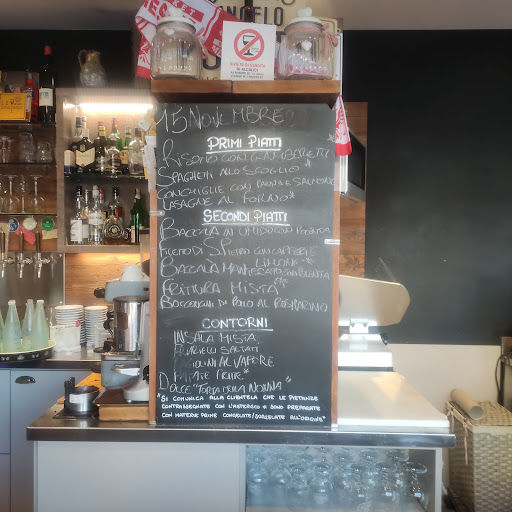 ANGELO
15 NOVEMBRE
PRIMI PIATTI
RISOTTO CON GAMBERETTI
SPAGHETTI ALLO SCOGLIO*
CONCHIGLIE CON PANNA E SALMONE
LASAGNE AL FORNO*
SECONDI PIATTI
BACCALÀ IN UMIDO CON POLENTA
FILETTO DI S. PIETRO CON CAPPERI E
LIMONE*
BACCALÀ MANTECATO CON POLENTA
FRITTURA MISTA*
BOCCONCINI DI POLLO AL ROSMARINO
CONTORNI
INSALATA MISTA
SALTATI
AL VAPORE
PATATE FRITTE*
DOLCE "TORTA DELLA NONNA"
*SI COMUNICA ALLA CLIENTELA CHE LE PIETANZE
CONTRASSEGNATE CON L'ASTERISCO * SONO PREPARATE
CON MATERIE PRIME CONGELATE/SURGELATE ALL'ORIGINE*